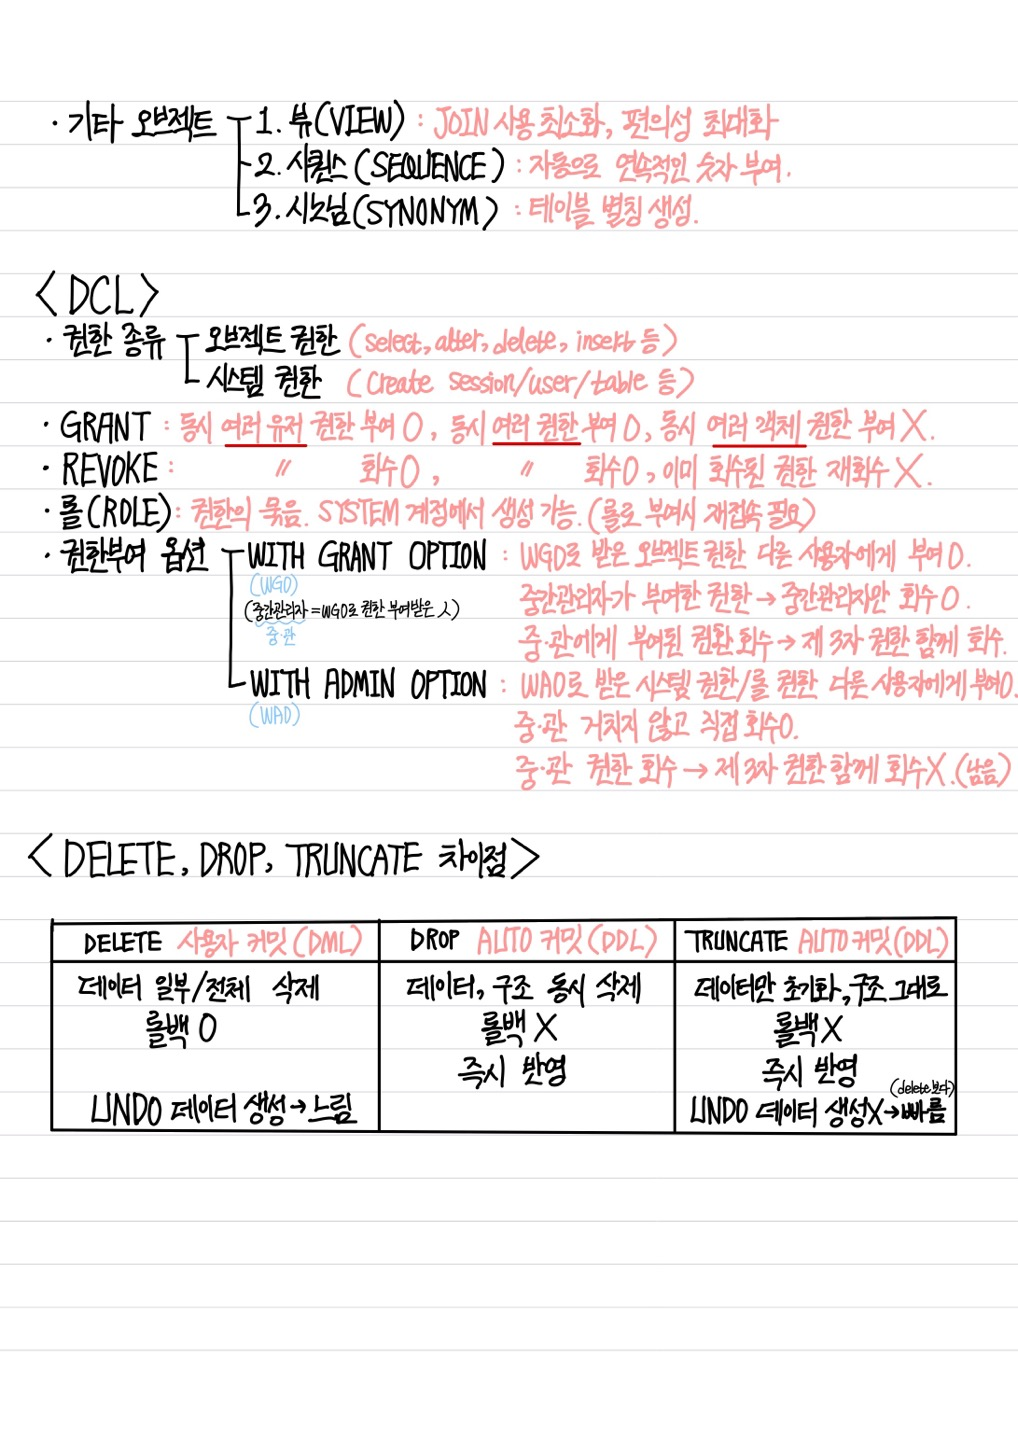 · 기타 오브젝트 1. 뷰(VIEW) : JOIN 사용 최소화, 편의성 최대화
2. 시퀀스 (SEQUENCE) : 자동으로 연속적인 숫자 부여.
3. 시노님(SYNONYM) : 테이블 별칭 생성.
<DCL>
· 권한 종류 오브젝트 권한 (select, alter, delete, insert 등)
시스템 권한 (Create session/user/table 등)
· GRANT : 동시 여러 유저 권한 부여 O, 동시 여러 권한 부여 O, 동시 여러 객체 권한 부여 X.
· REVOKE : 〃 회수 O, 〃 회수 O, 이미 회수된 권한 재회수 X.
· 롤(ROLE) : 권한의 묶음. SYSTEM 계정에서 생성 가능. (롤로 부여시 재접속 필요)
· 권한부여 옵션 WITH GRANT OPTION : WGO로 받은 오브젝트 권한 다른 사용자에게 부여 O.
(WGO)
(중간관리자 = WGO로 권한 부여받은 人) 중간관리자가 부여한 권한 → 중간관리자만 회수 O.
중·관 중·관에게 부여된 권한 회수 → 제 3자 권한 함께 회수.
WITH ADMIN OPTION : WAO로 받은 시스템 권한/롤 권한 다른 사용자에게 부여O.
(WAO) 중·관 거치지 않고 직접 회수O.
중·관 권한 회수 → 제 3자 권한 함께 회수X. (남음)
<DELETE, DROP, TRUNCATE 차이점>
DELETE 사용자 커밋 (DML) DROP AUTO 커밋 (DDL) TRUNCATE AUTO 커밋 (DDL)
데이터 일부/전체 삭제 데이터, 구조 동시 삭제 데이터만 초기화, 구조 그대로
롤백 O 롤백 X 롤백 X
즉시 반영 즉시 반영
(delete 보다)
UNDO 데이터 생성 → 느림 UNDO 데이터 생성X → 빠름